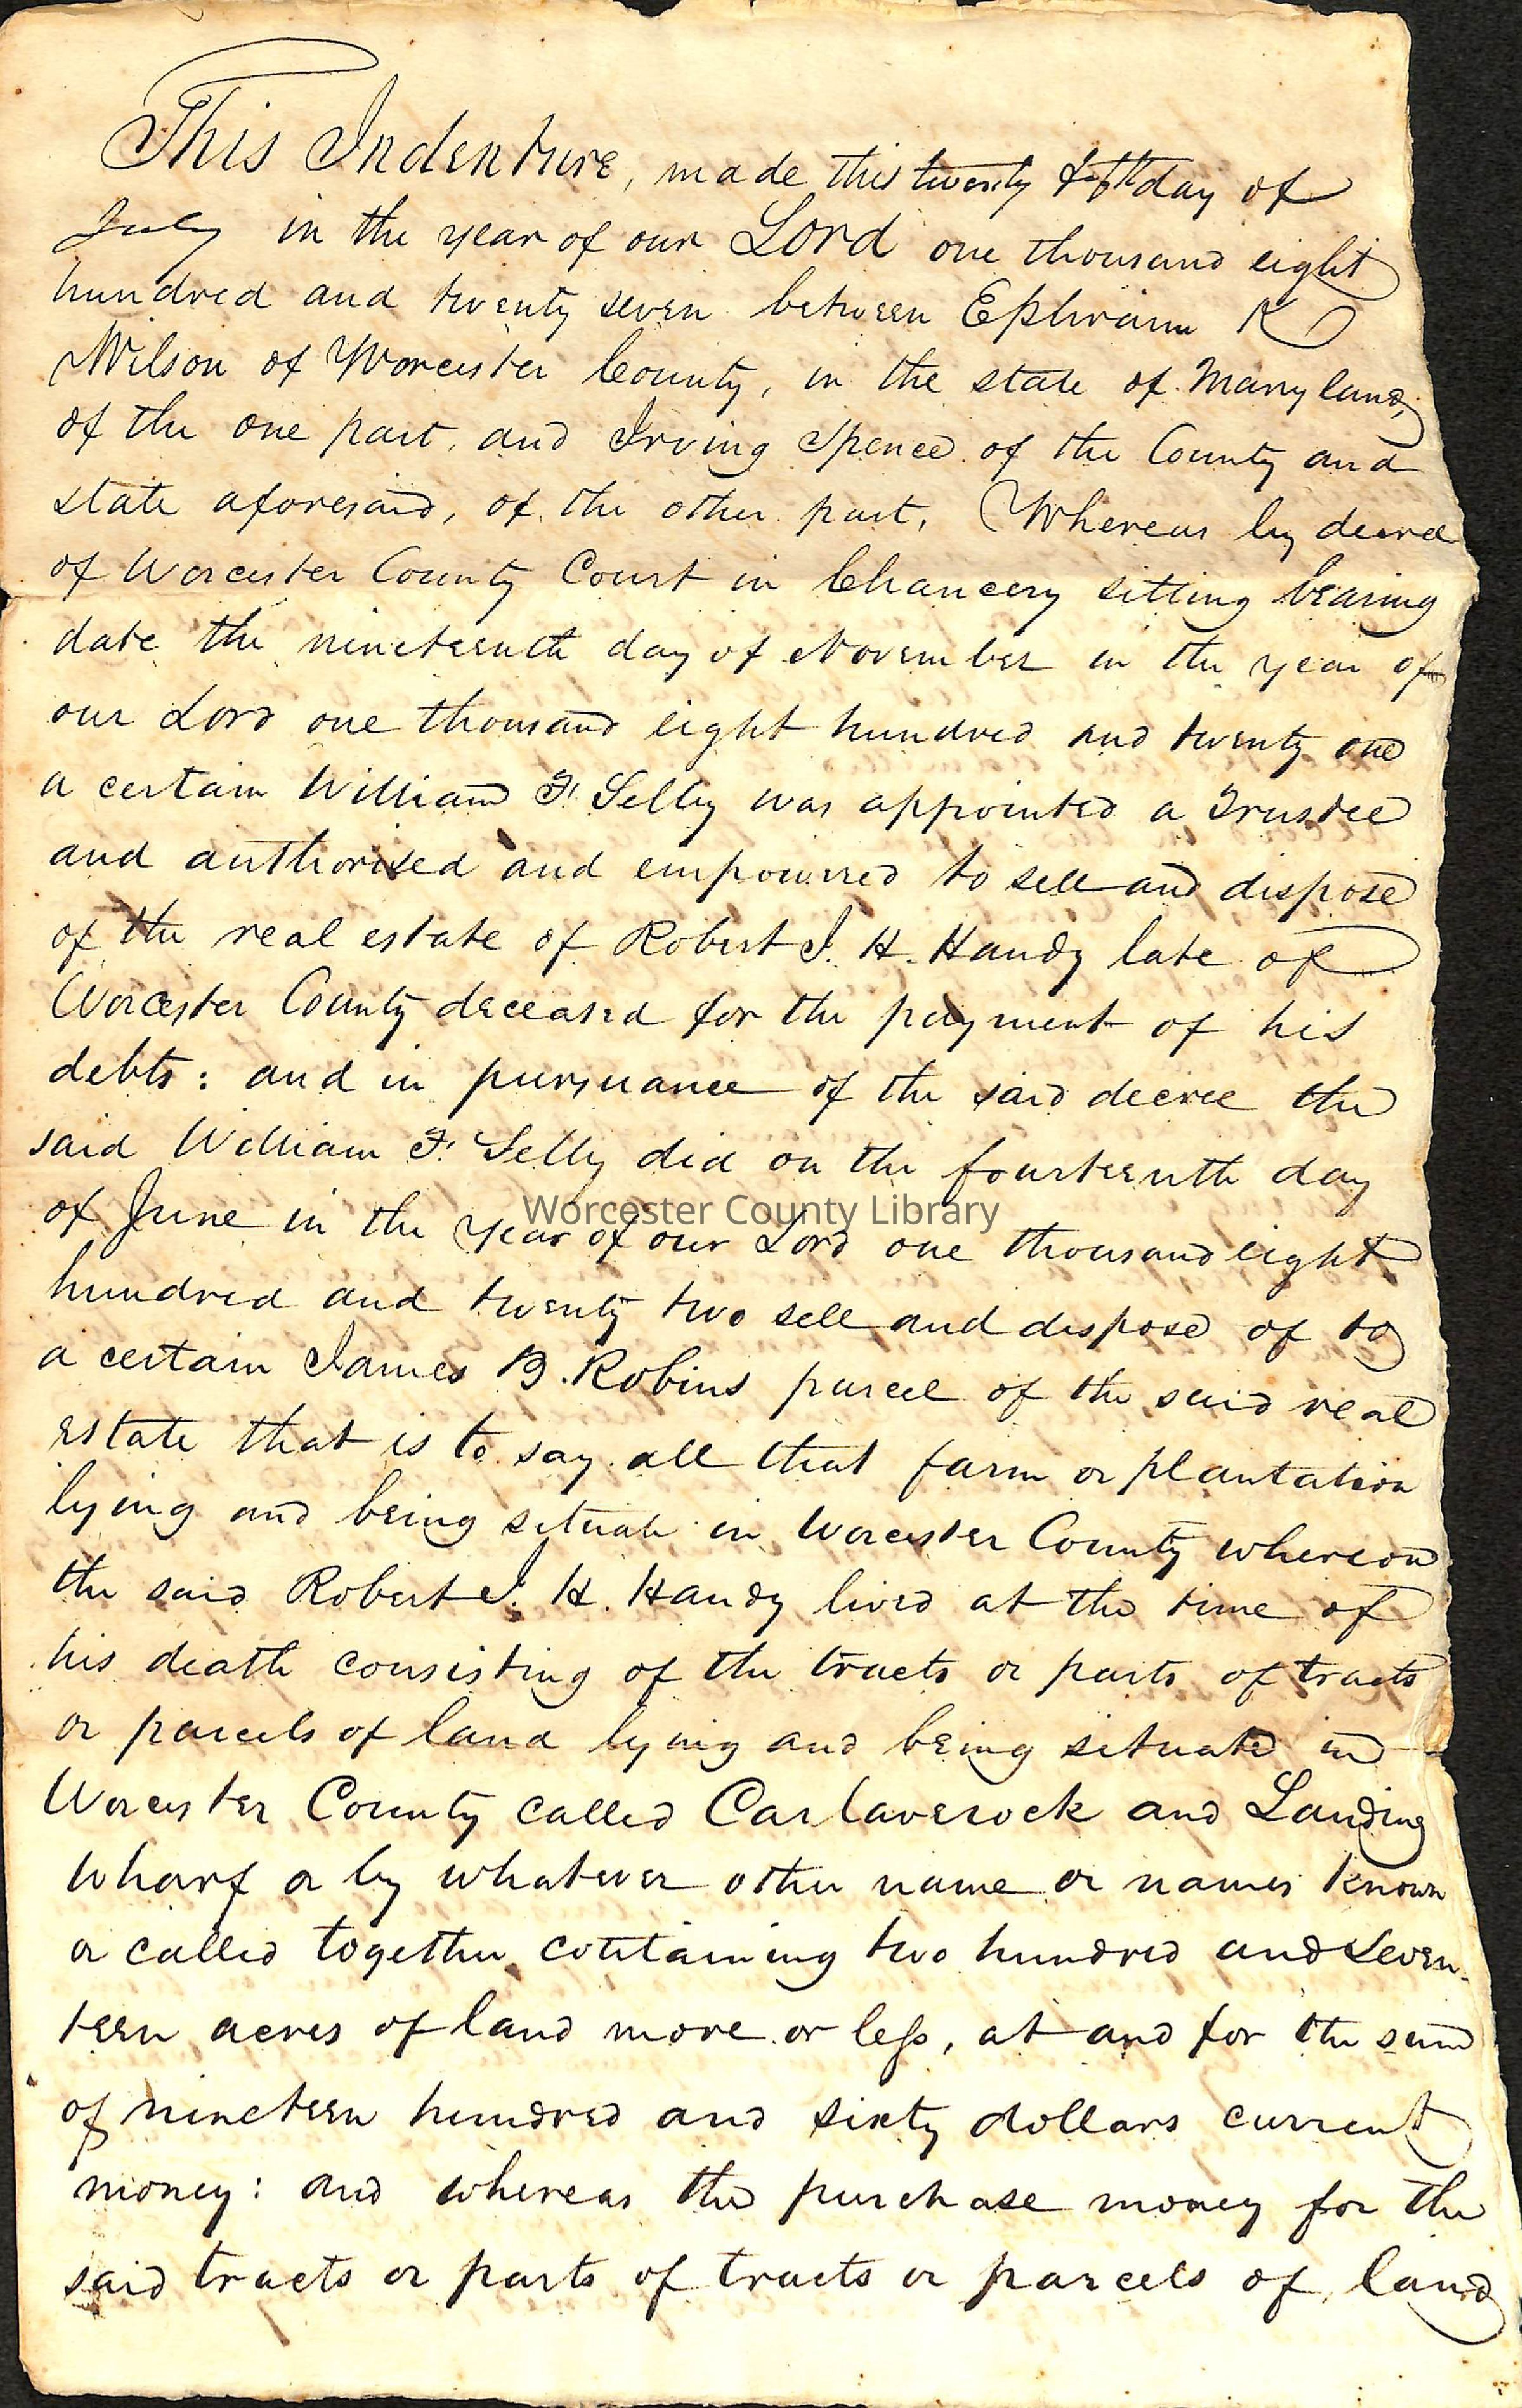 This Indenture, made this twenty fifth day of
July in the year of our Lord one thousand eight
hundred and twenty seven between Ephraim K
Wilson of Worcester County, in the state of Maryland,
of the one part, and Irving Spence of the County and
state aforesaid, of the other part, Whereas by decree
of Worcester County Court in Chancery sitting bearing
date the nineteenth day of November in the year of
our Lord one thousand eight hundred and twenty one
a certain William F. Selby was appointed a Trustee
and authorised and empowered to sell and dispose
of the real estate of Robert J. H. Handy late of
Worcester County deceased for the payment of his
debts: and in pursuance of the said decree the
said William F. Selby did on the fourteenth day
Worcester County Library
of June in the year of our Lord one thousand eight
hundred and twenty two sell and dispose of to
a certain James B. Robins parcel of the said real
estate that is to say all that farm or plantation
lying and being situate in Worcester County whereon
the said Robert J. H. Handy lived at the time of
his death consisting of the tracts or parts of tracts
or parcels of land lying and being situate in
Worcester County called Carlaverock and Landing
Wharf or by whatever other name or names known
or called together containing two hundred and seven-
teen acres of land more or less, at and for the sum
of nineteen hundred and sixty dollars current
money: and whereas the purchase money for the
said tracts or parts of tracts or parcels of land